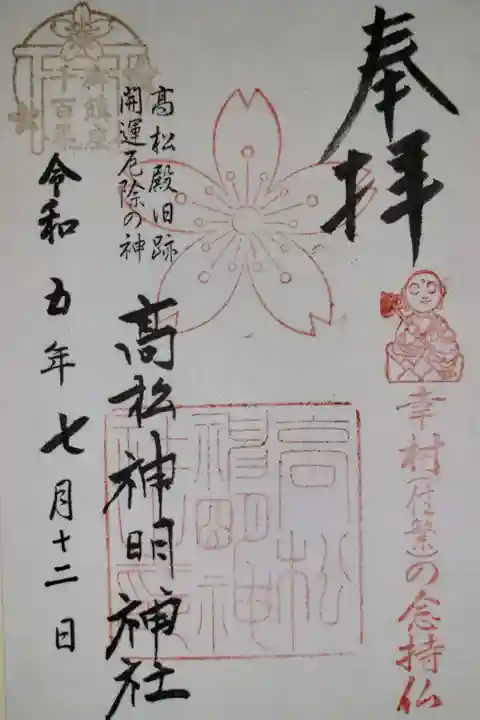 奉拝
幸村(信繁)の念持仏
高松殿旧跡
開運厄除の神
髙松神明神社
高松
神明神
社之印
御鎮座
千百年
令和五年七月十二日